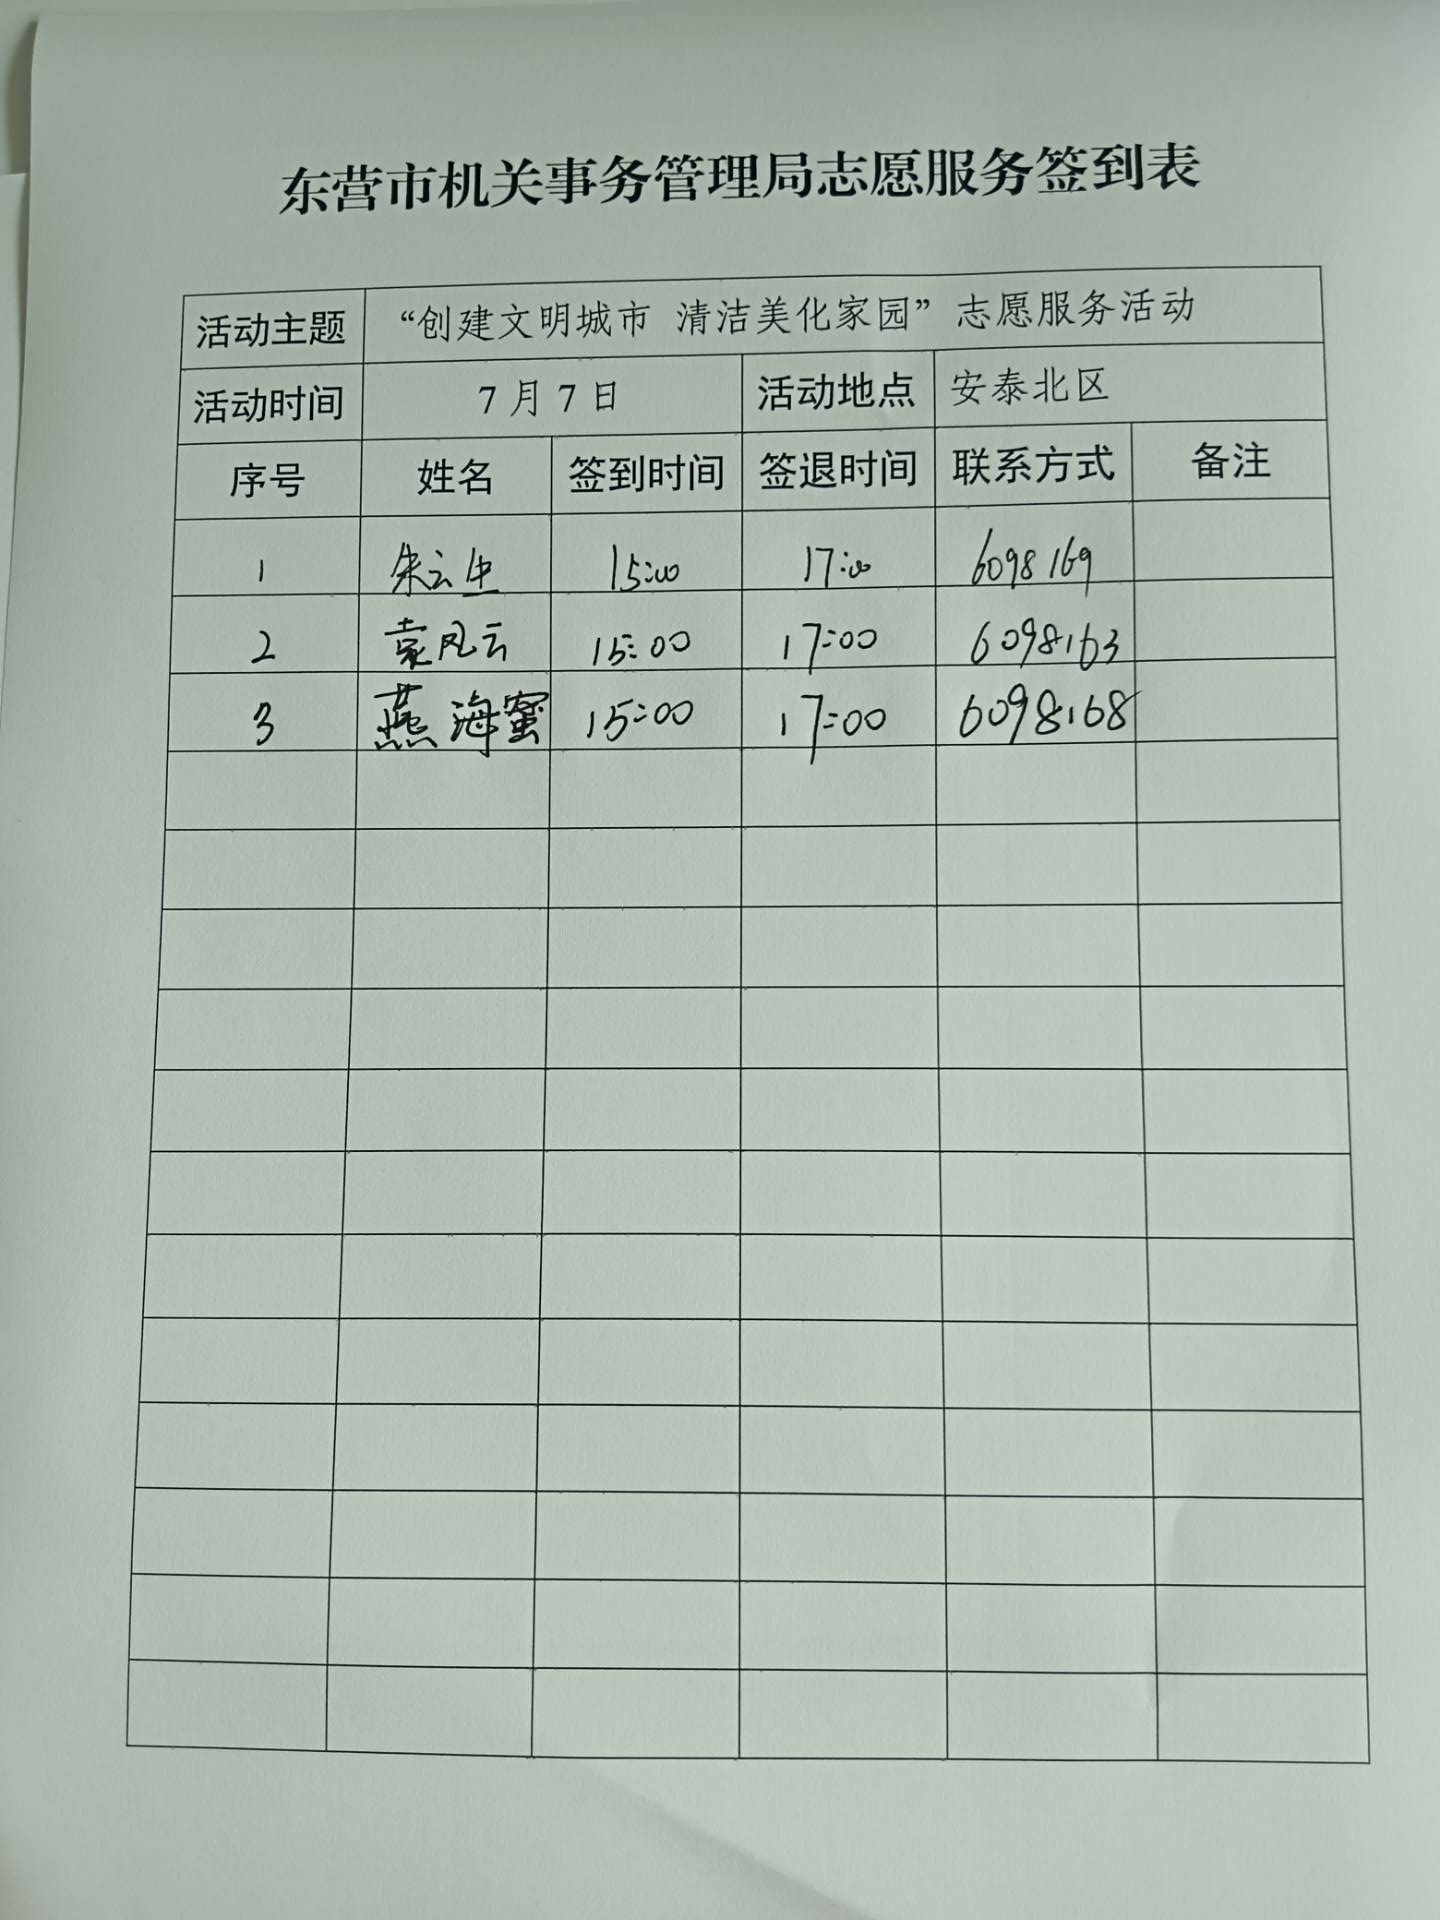 东营市机关事务管理局志愿服务签到表
活动主题 “创建文明城市 清洁美化家园”志愿服务活动
活动时间 7月7日 活动地点 安泰北区
序号 姓名 签到时间 签退时间 联系方式 备注
1 朱云生 15:00 17:00 6098169
2 袁风云 15:00 17:00 6098163
3 燕海蜜 15:00 17:00 6098168